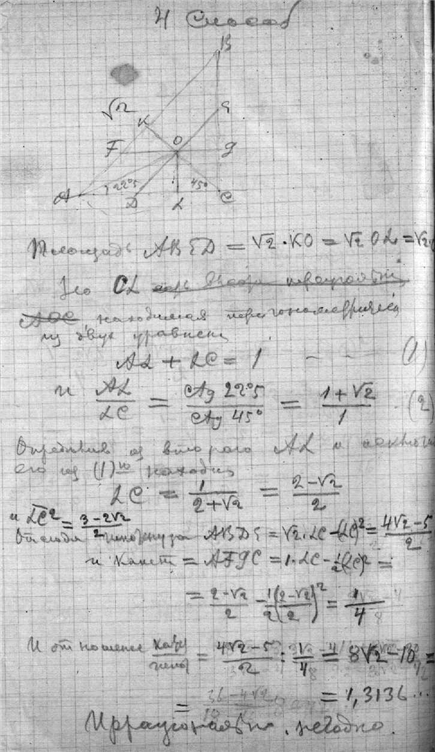 4 Способ
B
√2
K
E
F
O
g
A
22°5
45°
D
L
C
Площадь ABED = √2 · KO = √2 OL = √2
Но OL
находимая тригонометрически
из двух уравнен
AL + LC = 1 - - - (1)
и AL/LC = Ctg 22°5 / Ctg 45° = (1 + √2)/1 - (2)
Определив из второго AL и
его из (1)го находим
LC = 1/(2+√2) = (2-√2)/2
и LC² = (3-2√2)/2
ABDE = √2·LC - (LC)² = (4√2-5)/2
и = AFgC = 1·LC - ½(LC)² =
= (2-√2)/2 - ½((2-√2)/2)² = 1/4
И отношение = (4√2-5)/2 : 1/4 = 8√2-10
= 1,3136...
Иррационально. негодно.